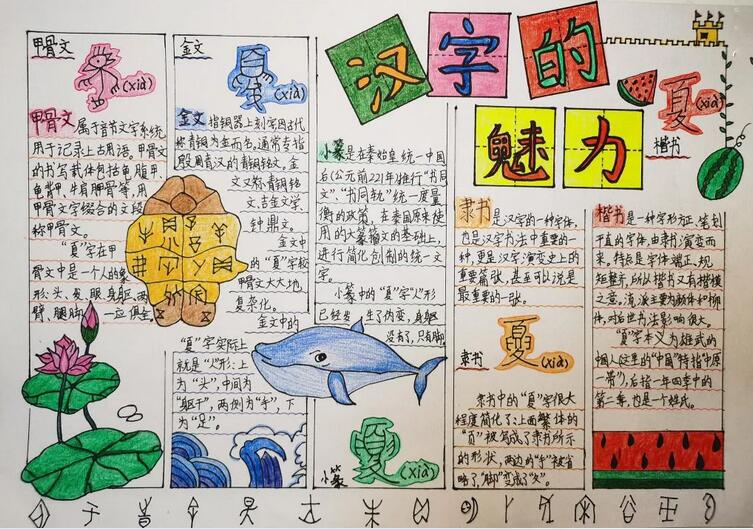 汉字的
魅力
甲骨文
(xià)
甲骨文属于音节文字系统,
用于记录上古用语。甲骨文
的书写载体包括龟腹甲、
龟背甲、牛肩胛骨等,用
甲骨文字缀合的文段
称甲骨文。
“夏”字在甲
骨文中是一个人的象
形:头、发、眼、身躯、两
臂、腿脚,一应俱全。
金文
(xià)
金文指铜器上刻字因古代
称青铜为金而名,通常专指
殷周秦汉的青铜铭文,金
文又称青铜铭
文、吉金文字、
钟鼎文。
金文中
的“夏”字较
甲骨文大大地
复杂化。
金文中的
“夏”字实际上
就是“人”形:上
为“头”,中间为
“躯干”,两侧为“手”,下
为“足”。
小篆是在秦始皇统一中国
后(公元前221年)推行“书同
文”、“书同轨”统一度量
衡的政策,在秦国原来使
用的大篆籀文的基础上,
进行简化创制的统一文
字。
小篆中的“夏”字“人”形
已经发生了伪变,身躯
没有了,只有脚
(xià)
小篆
隶书
是汉字的一种字体,
也是汉字书法中重要的一
种,更是汉字演变史上的
重要篇张,甚至可以说是
最重要的一张。
夏(xià)
隶书
隶书中的“夏”字很大
程度简化了:上面繁体的
“百”被写成了隶书所示
的形状,两边的“手”被省
略了,“脚”变成了“夂”。
夏(xià)
楷书
楷书是一种字形方正、笔划
平直的字体,由隶书演变而
来,特点是字体端正、规
矩整齐,所以楷书又有楷模
之意。流派主要为颜体和柳
体,对后世书法影响很大。
“夏”字本义为雄武的
中国人(这里的“中国”特指“中原
一带”),后指一年四季中的
第二季,也是个姓氏。